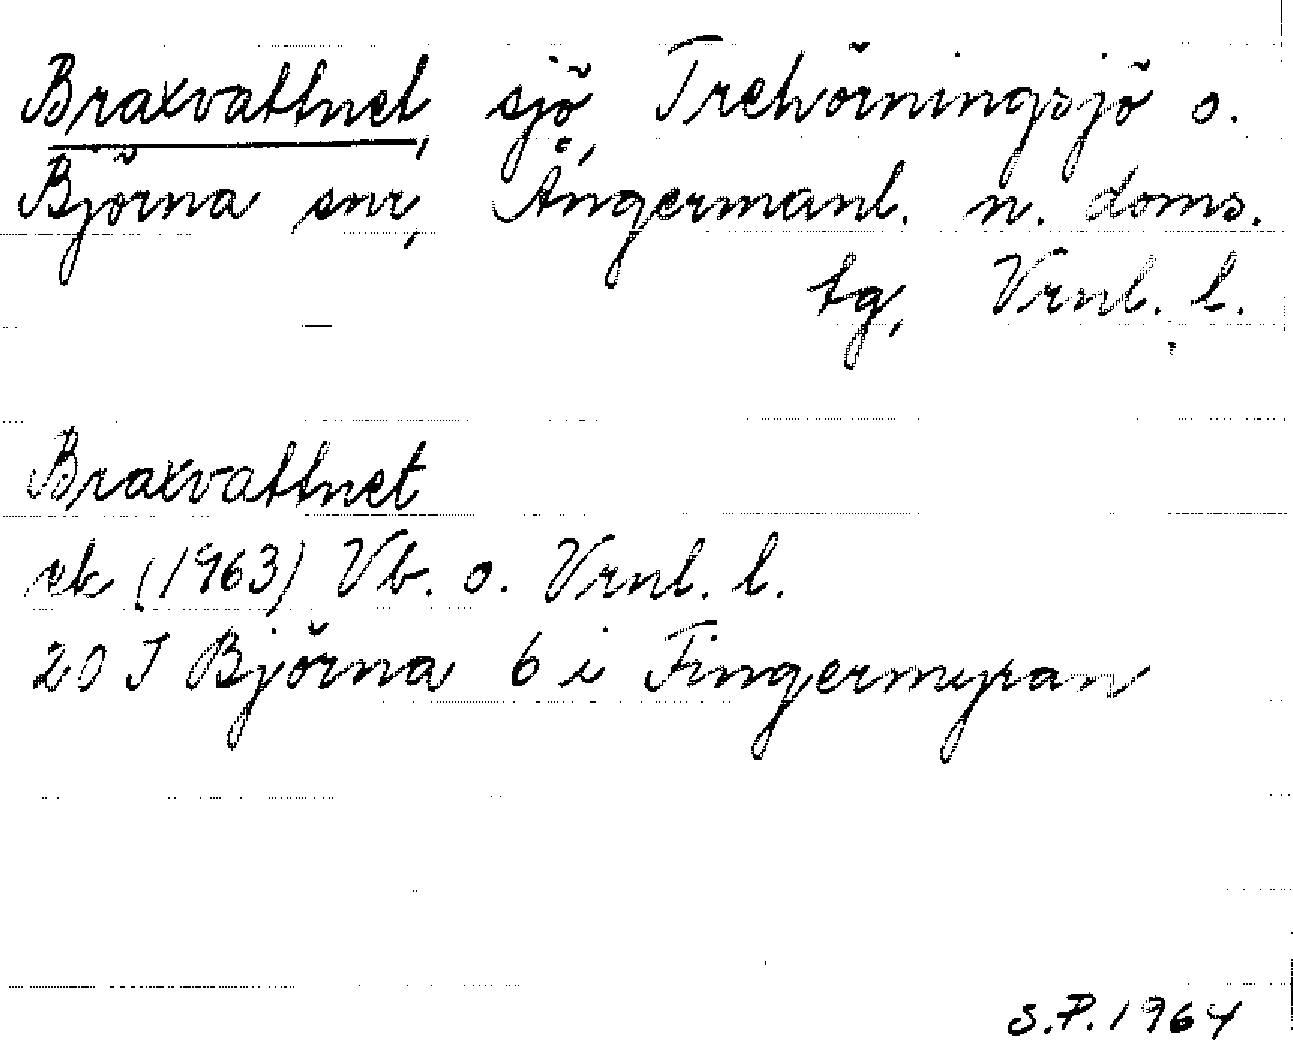 Braxvattnet, sjö, Trehörningsjö o.
Björna snr, Ångermanl. n. doms.
tg, Vrnl. l.
Braxvattnet
ek (1963) Vb. o. Vrnl. l.
20 J Björna 6 i Fingermyran
S.P. 1964